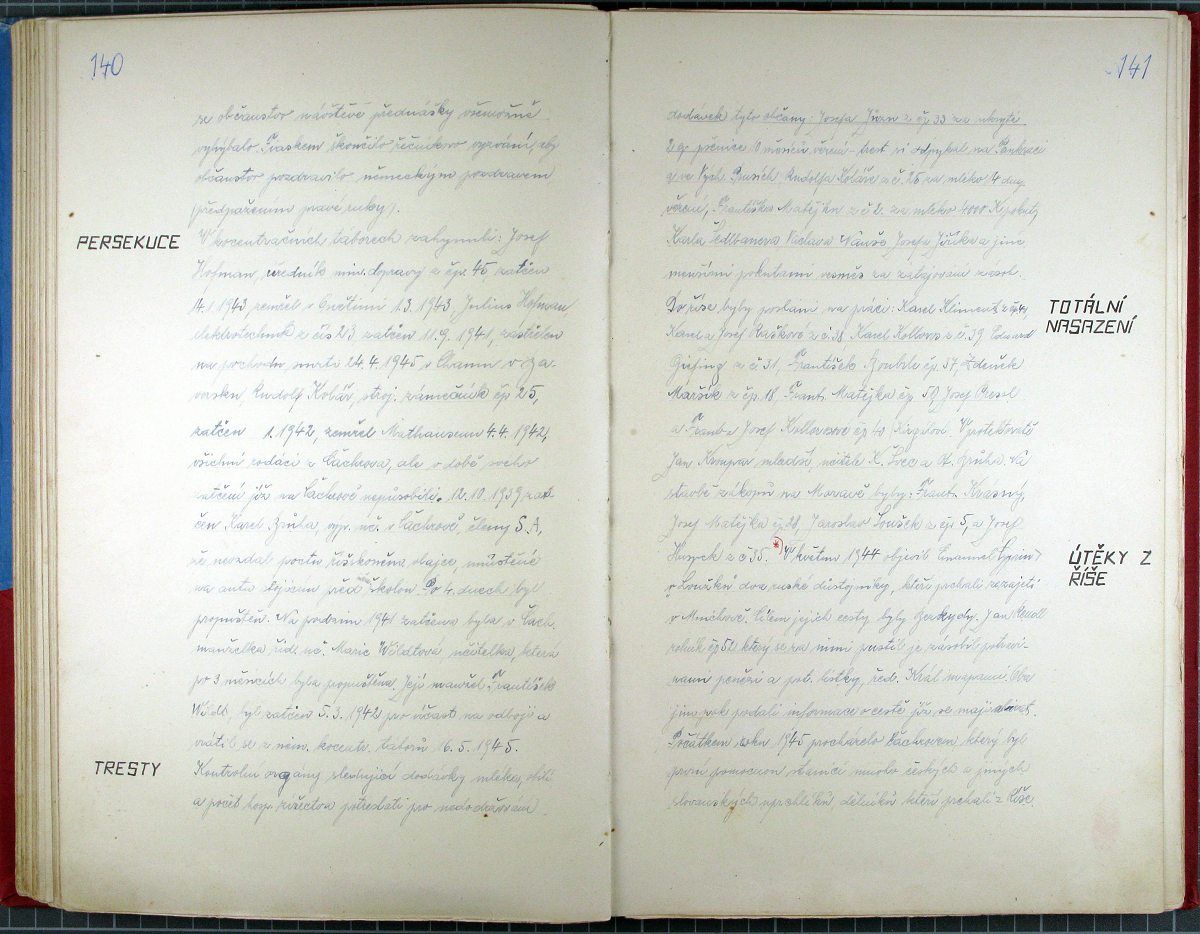 140
se občanstvo návštěvě přednášky všemožně
vyhýbalo. Fraskem skončilo řečníkovo vyzvání, aby
občanstvo pozdravilo německým pozdravem
(předpažením pravé ruky).
PERSEKUCE
V koncentračních táborech zahynuli: Josef
Hofman, úředník min. dopravy z čp. 45, zatčen
14.1.1943, zemřel v Osvětimi 1.3.1943, Julius Hofman
elektrotechnik z čís 23 zatčen 11.9.1941, zastřelen
na pochodu smrti 24.4.1945 v Chramu v Ba-
vorsku, Rudolf Kolář, stroj. zámečník čp 25,
zatčen 1.1942, zemřel Mathausenu 4.4.1942,
všichni rodáci z Čachrova, ale v době svého
zatčení již na Čachrově nepůsobili. 12.10.1939 zat
čen Karel Brůha, uč. v Čachrově, členy S.A,
že nevzdal poctu říškoněna vlajce, umístěné
na autu stojícím před školou. Po 4. dnech byl
propuštěn. Na podzim 1941 zatčena byla v Čach.
manželka říd. uč. Marie Wildtová, učitelka, která
po 3 měsících byla propuštěna. Její manžel František
Wildt, byl zatčen 5.3.1942 pro účast na odboji a
vrátil se z něm. koncentr. táborů 16.5.1945.
TRESTY
Kontrolní orgány sledující dodávky mléka, obilí
a počet hosp. zvířectva potrestali pro nedodržování
141
dodávek tyto občany: Josefa z čp 33 za ukrytí
2 q pšenice měsíců vězení - trest si odpykal na Pankráci
a ve Vých. Prusích Rudolfa Koláře z č. 25 za mléko 4 dny
vězení, Františka Matějku z č 2. za mléko 4000 K pokuty
Karla Václava Josefa a jiné
menšími pokutami vesměs za zatajování zásob.
TOTÁLNÍ
NASAZENÍ
Do říše byly poslání na práci: Karel Kliment z čp 4,
Karel a Josef Ruškové z č. 38 Karel Kollovs z č. 39 Eduard
z č 31, František Boukle čp. 37, Zdeněk
Maršík z čp. 18, Frant. Matějka čp. 50, Josef
a Josef čp V protektorátě
Jan Kroupa mladší, učitel K. Švec a A. Brůha. Na
stavbě zákopů na Moravě byly: Frant. Krásný,
Josef Matějka čp 28, Jaroslav Loušek z čp 5, a Josef
z č 35. *) V květnu 1944 objevil Emanuel
ÚTĚKY Z
ŘÍŠE
v dva ruské důstojníky, kteří prchali ze zajetí
v Mnichově. Cílem jejich cesty byly Beskydy. Jan
rolník čp 52 který se za nimi pustil je zásobil potravi-
nami penězi a pot. lístky, řed. Král mapami. Oba
jim pak podali informace o cestě již se mají
Počátkem roku 1945 procházelo Čachrovem který byl
první pomocnou stanicí mnoho českých a jiných
slovanských uprchlíků, dělníků kteří prchali z Říše.